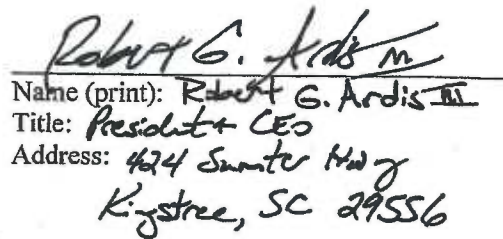 Robert G. Ardis III
Name (print): Robert G. Ardis III
Title: President + CEO
Address: 424 Sumter Hwy
Kingstree, SC 29556